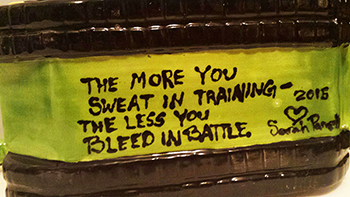 THE MORE YOU
SWEAT IN TRAINING-
THE LESS YOU
BLEED IN BATTLE.
2015
Sarah